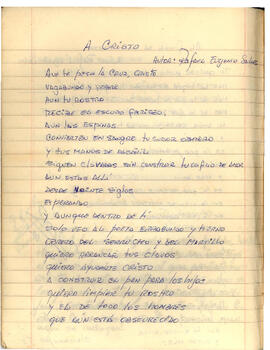 A CRISTO
AUTOR: Rafael Eugenio Salas
AUN TE PESA LA CRUZ, CRISTO
VAGABUNDO Y POBRE
AUN TU ROSTRO
RECIBE EL ESCUPO FARISEO,
AUN LAS ESPINAS
CONVIERTEN EN SANGRE TU SUDOR OBRERO
Y TUS MANOS DE ALBAÑIL
SIGUEN CLAVADAS SIN CONSTRUIR TU CASITA DE
AUN ESTAS ALLI
DESDE VEINTE SIGLOS
ESPERANDO
Y AUNQUE DENTRO DE TI
SOLO VEO AL POETA VAGABUNDO Y TIERNO
OBRERO DEL SERRUCHO Y DEL MARTILLO
QUIERO ARRANCAR TUS CLAVOS
QUIERO AYUDARTE CRISTO
A CONSTRUIR EL PAN PARA LOS HIJOS
QUIERO LIMPIAR TU ROSTRO
Y EL DE TODOS LOS HOMBRES
QUE AUN ESTA OBSCURECIDO